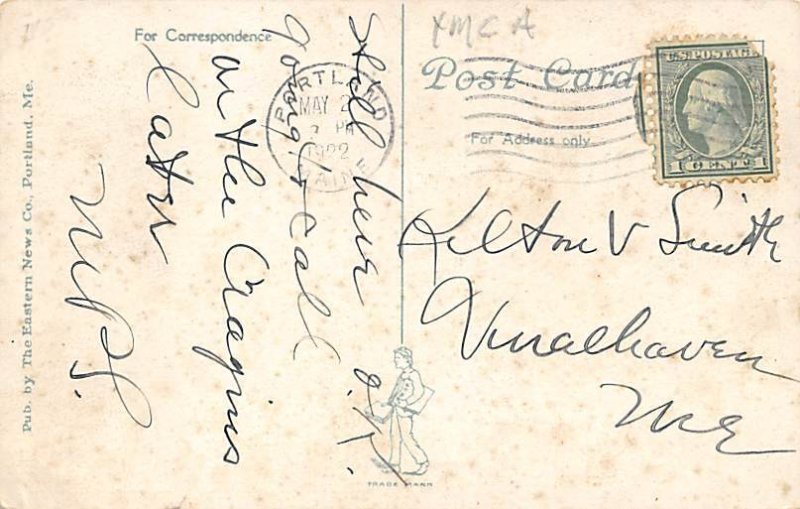 YMCA
For Correspondence
Post Card
For Address only
U.S. POSTAGE
1 CENT 1
PORTLAND
MAY 2
PM
1922
MAINE
Still here O.K.
going to call
on the Cragins
later
Kilton V Smith
Vinalhaven
Me
Pub. by The Eastern News Co., Portland, Me.
TRADE MARK